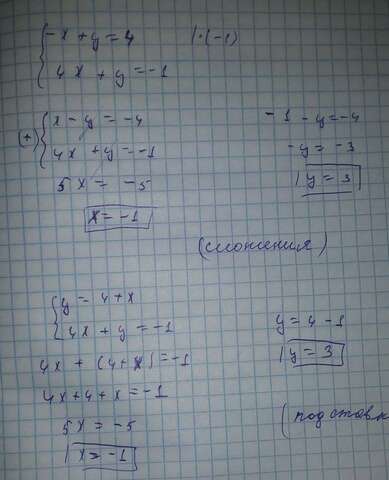 { -x + y = 4 | · (-1)
4x + y = -1
(+) { x - y = -4
4x + y = -1
5x = -5
x = -1
-1 - y = -4
-y = -3
y = 3
(сложения)
{ y = 4 + x
4x + y = -1
4x + (4 + x) = -1
4x + 4 + x = -1
5x = -5
x = -1
y = 4 - 1
y = 3
(подставк